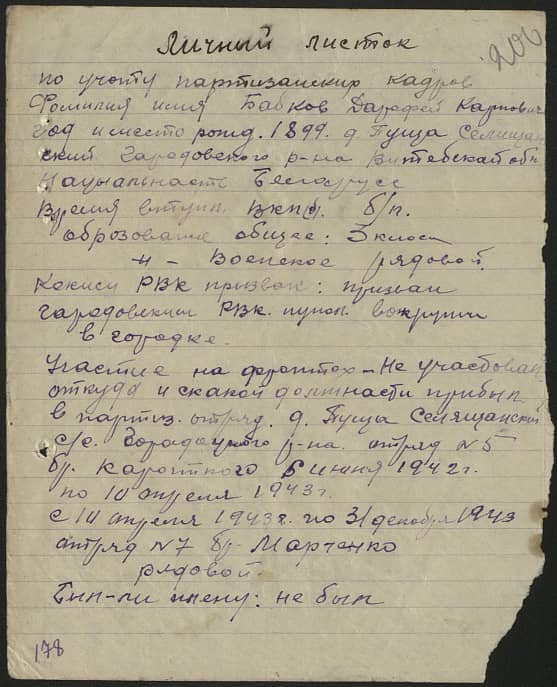 Личный листок
206
по учоту партизанских кадров
Фомилия имя Бабков Дарофей Карпович
год и место рожд. 1899. д. Пуща Селищан
ский Гарадовского р-на Витебской обл
Нацыальность Беларусс
Время вступл. ВКПб. б/п.
оброзование общее: 3 класса
-н- Военское рядовой.
Каким РВК призван: призван
гарадовским РВК.
в городке.
Участие на фронтох - Не участвовал
откуда и скакой должности прибыл
в партиз. отряд. д. Пуща Селящанский
с/с. Гарадоцкого р-на. отряд №5
бр. Кароткого 5 июня 1942г.
по 10 апреля 1943г.
с 10 апреля 1943г. по 31 декабря 1943
отряд №7 бр- Марченко
рядовой.
Был-ли плену: не был
178